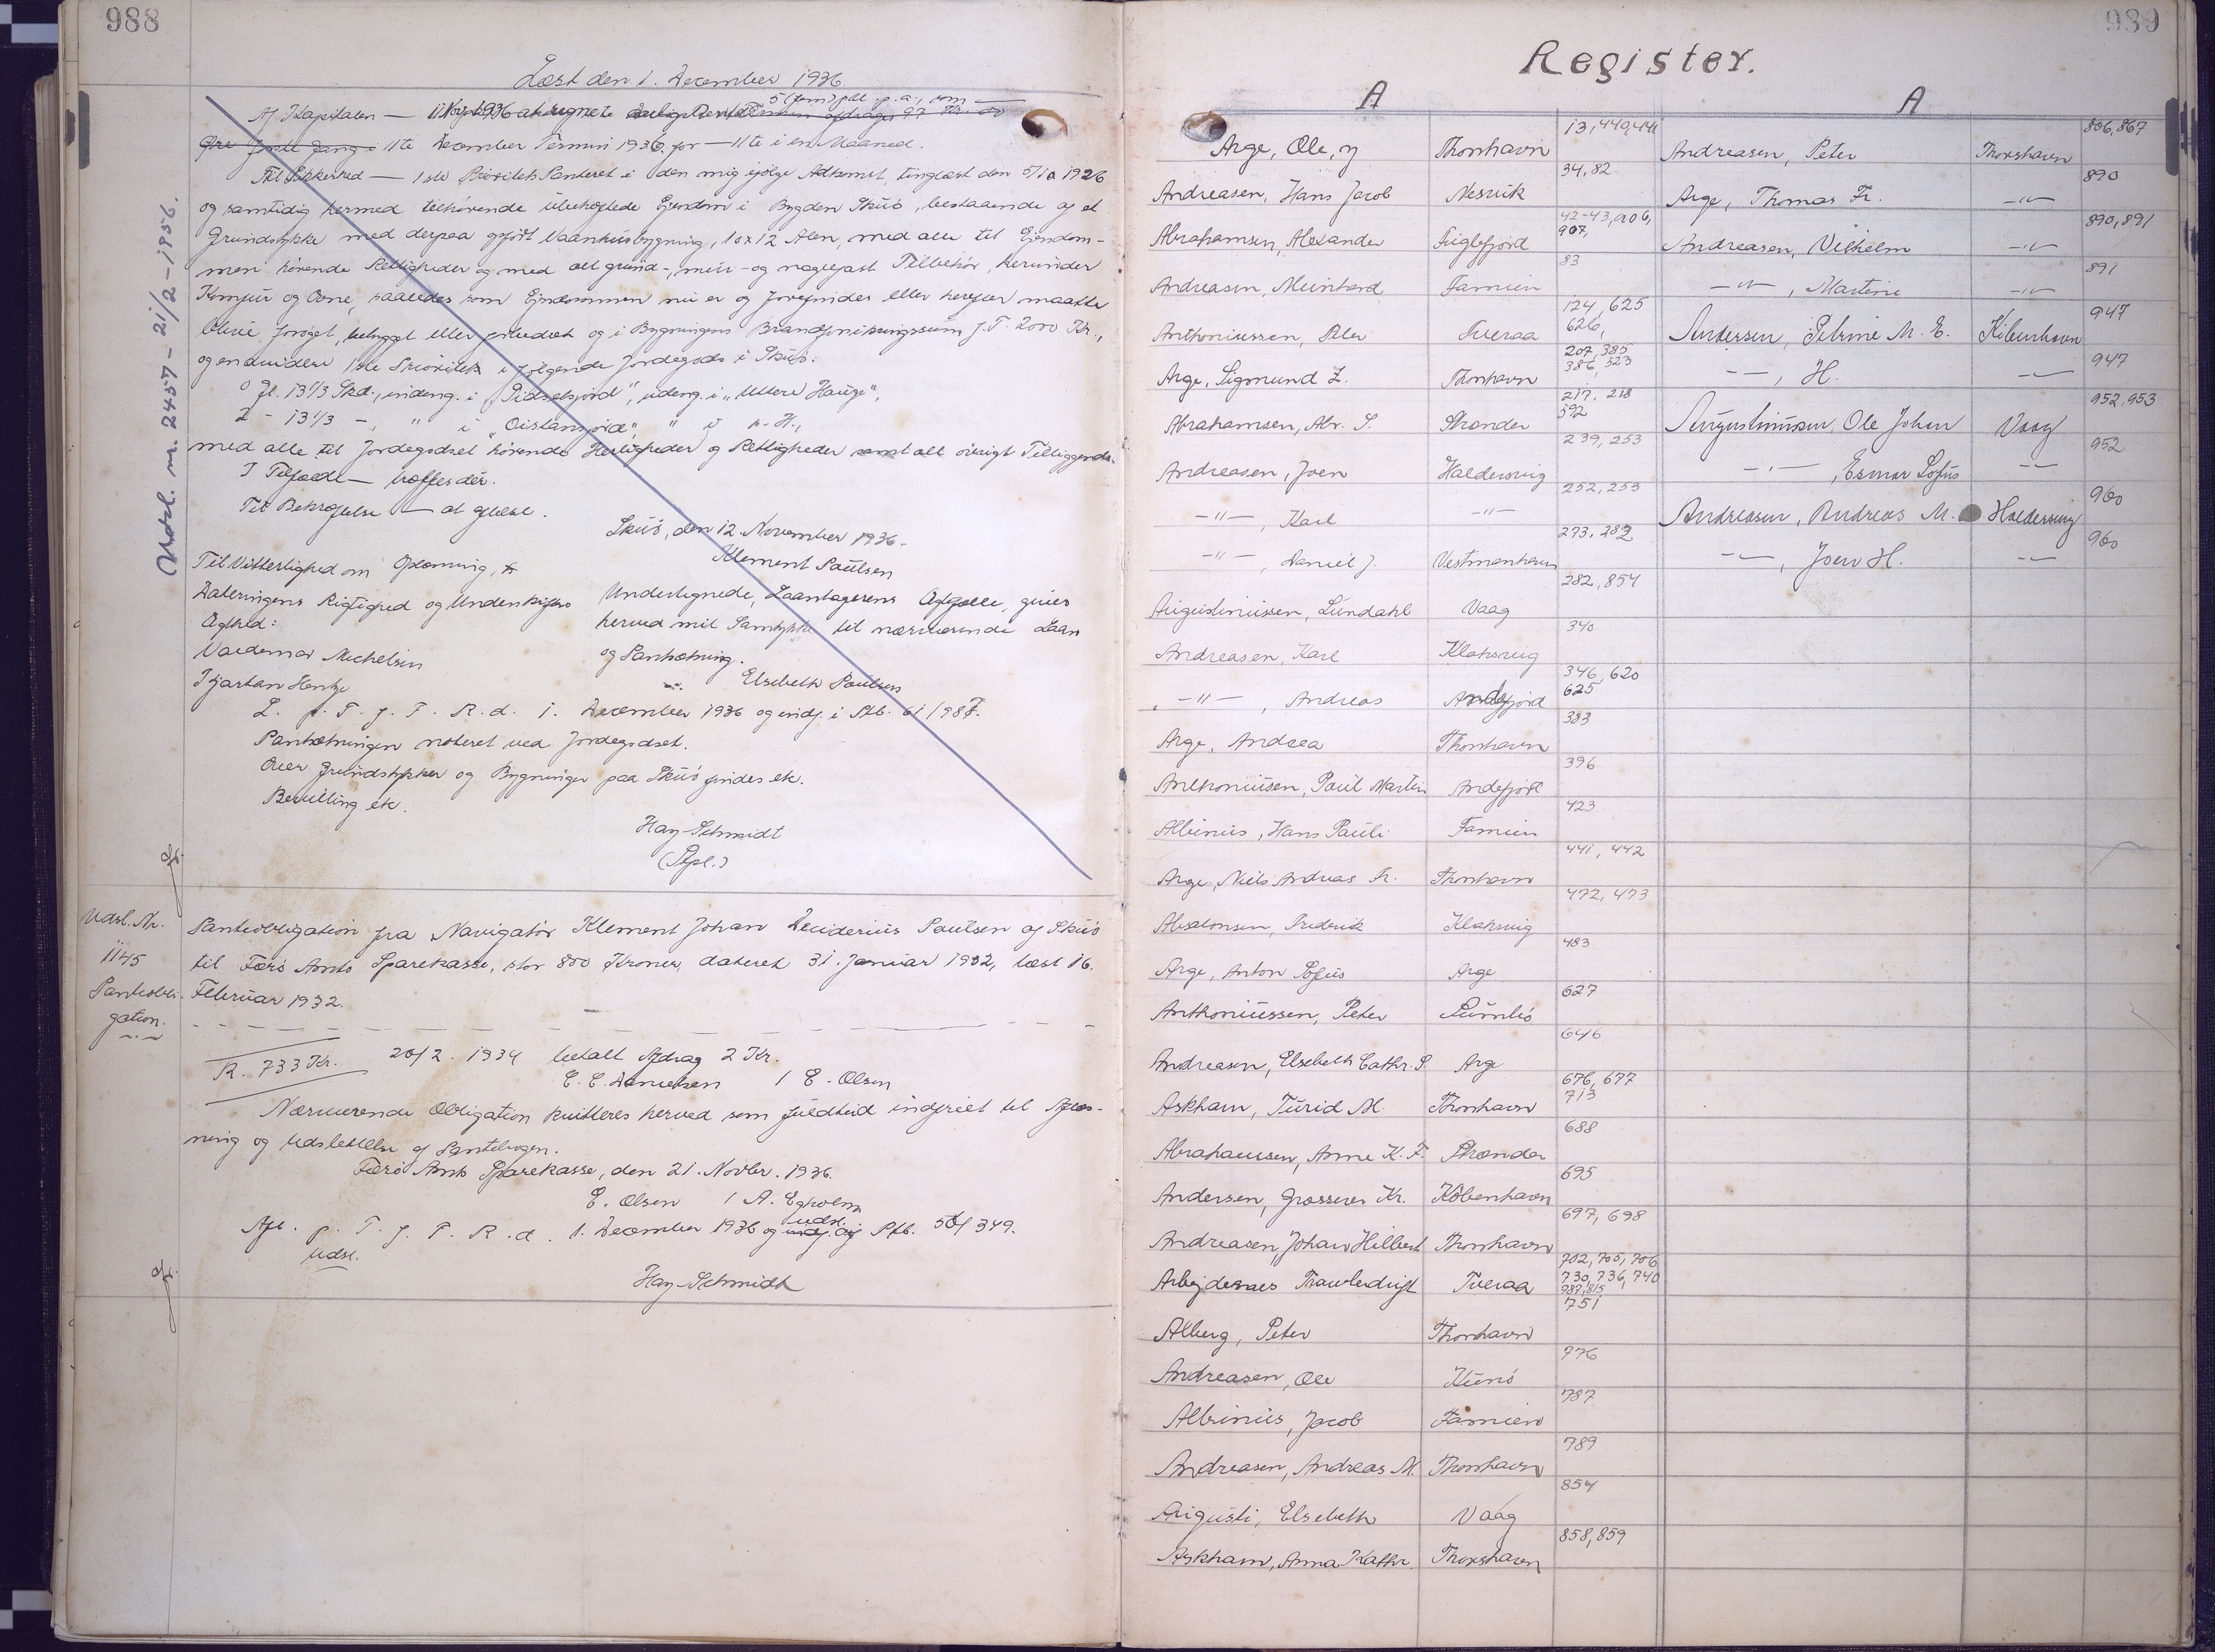 988
Læst den 1. December 1936
5 (fem) pCt. p. a., som
Af Kapitalen — 11 Novbr. 1936 at regnet
11te December Termin 1936 for — 11te i en Maaned.
Til Sikkerhed — 1ste Prioritets Panteret i den mig ifølge Adkomst, tinglæst den 5/10 1926
og samtidig hermed tilhørende übehæftede Ejendom i Bygden Skúò, bestaaende af et
Grundstykke med derpaa opført Vaaningshusbygning, 10x12 Alen, med alle til Ejendom-
men hørende Rettigheder og med alt grund-, mür- og nagelfast Tilbehör, herunder
Komfür og Ovne, saaledes som Ejendommen nü er og forefindes eller herefter maatte
blive forøget, bebygget eller forbedret og i Bygningens Brandforsikringssum f. T. 2000 Kr.,
og endvidere 1ste Prioritets i følgende Jordegods i Skúò:
0 Gl. 13 1/3 Skd., indeng. i "Pidsefjord", udeng. i "Uttere Hauge",
2 - 13 1/3 -, " i "Oistanfjord", " i s. H.,
med alle til Jordegodset hørende Herligheder og Rettigheder samt alt övrigt Tilliggende.
I Tilfælde — træffes dér.
Til Bekræftelse — at
Skúò, den 12. November 1936.
Klement Paülsen
Til Vitterlighed om Oplæsning,
Dateringens Rigtighed og Underskriftens
Ægthed:
Valdemar Michelsen
Kjartan Hentze
Undertegnede, Laantagerens Ægtefælle, giver
herved mit Samtykke til nærværende Laan
og Pantsætning.
Elsebeth Paulsen
L. p. T. f. F. R. d. 1. December 1936 og indf. i Ptb. 61/987.
Pantsætningen noteret ved Jordegodset.
Over Grundstykker og Bygninger paa Skúò findes ek.
Bevilling ek.
Hay-Schmidt
(Stpl.)
Udsl. nr. 2457 - 21/2 - 1956.
Udsl. Nr.
1145
Panteobli-
gation.
Panteobligation fra Navigatör Klement Johan Desiderius Paulsen af Skúò
til Færö Amts Sparekasse, stor 800 Kroner, dateret 31. Januar 1932, læst 16.
Februar 1932.
R. 733 Kr. 20/2. 1934 betalt Afdrag 2 Kr.
E. E. Danielsen / E. Olsen
Nærværende Obligation kvitteres herved som füldtüd indfriet til Aflæs-
ning og Udslettelse af Pantebogen.
Færö Amts Sparekasse, den 21. Novbr. 1936.
E. Olsen / A. Egholm
Afl. p. T. f. F. R. d. 1. December 1936 og udsl. af Ptb. 58/349.
Udsl.
Hay-Schmidt
989
Register.
A
A
Arge, Ole, y Thorshavn 13, 440, 441
Andreasen, Hans Jacob Nesvik 34, 82
Abrahamsen, Alexander Fuglefjord 42-43, 906, 907,
Andreasen, Meinhard Famien 83
Anthoniussen, Peter Tveraa 124, 625 626,
Arge, Sigmund Z. Thorshavn 207, 385 386, 323
Abrahamsen, Abr. S. Strænder 217, 218 592
Andreasen, Joen Haldersvig 239, 253
-"-, Karl -"- 252, 253
-"-, Daniel J. Vestmanhavn 273, 282
Augustinussen, Lündahl Vaag 282, 854
Andreasen, Karl Klaksvig 340
-"-, Andreas Andefjord 346, 620 625
Arge, Andrea Thorshavn 383
Anthoniüsen, Poul Martin Andefjord 396
Albinüs, Hans Pauli Famien 423
Arge, Niels Andreas Sr. Thorshavn 441, 442
Absalonsen, Frederik Klaksvig 472, 473
Arge, Anton Sofüs Arge 483
Anthoniüssen, Peter Sümbö 627
Andreasen, Elsebeth Cathr. S. Arge 646
Askham, Türid M. Thorshavn 676, 677 713
Abrahamsen, Anne K. F. Strænder 688
Andersen, Grosserer Kr. Köbenhavn 695
Andreasen, Johan Hilbert Thorshavn 697, 698
Arbejdernes Trawlerdrift Tveraa 702, 705, 706 730, 736, 740 787, 815
Alberg, Peter Thorshavn 751
Andreasen, Ole Künö 776
Albinüs, Jacob Famien 787
Andreasen, Andreas M. Thorshavn 789
Augüsti, Elsebeth Vaag 854
Askham, Anna Kathr. Thorshavn 858, 859
Andreasen, Peter Thorshavn 866, 867
Arge, Thomas Fr. -"- 890
Andreasen, Vilhelm -"- 890, 891
-"-, Martine -"- 891
Andersen, Petrine M. E. Köbenhavn 947
-"-, H. -"- 947
Augustinüssen, Ole Johan Vaag 952, 953
-"-, Esmar Sofüs -"- 952
Andreasen, Andreas M. Haldersvig 960
-"-, Joen H. -"- 960